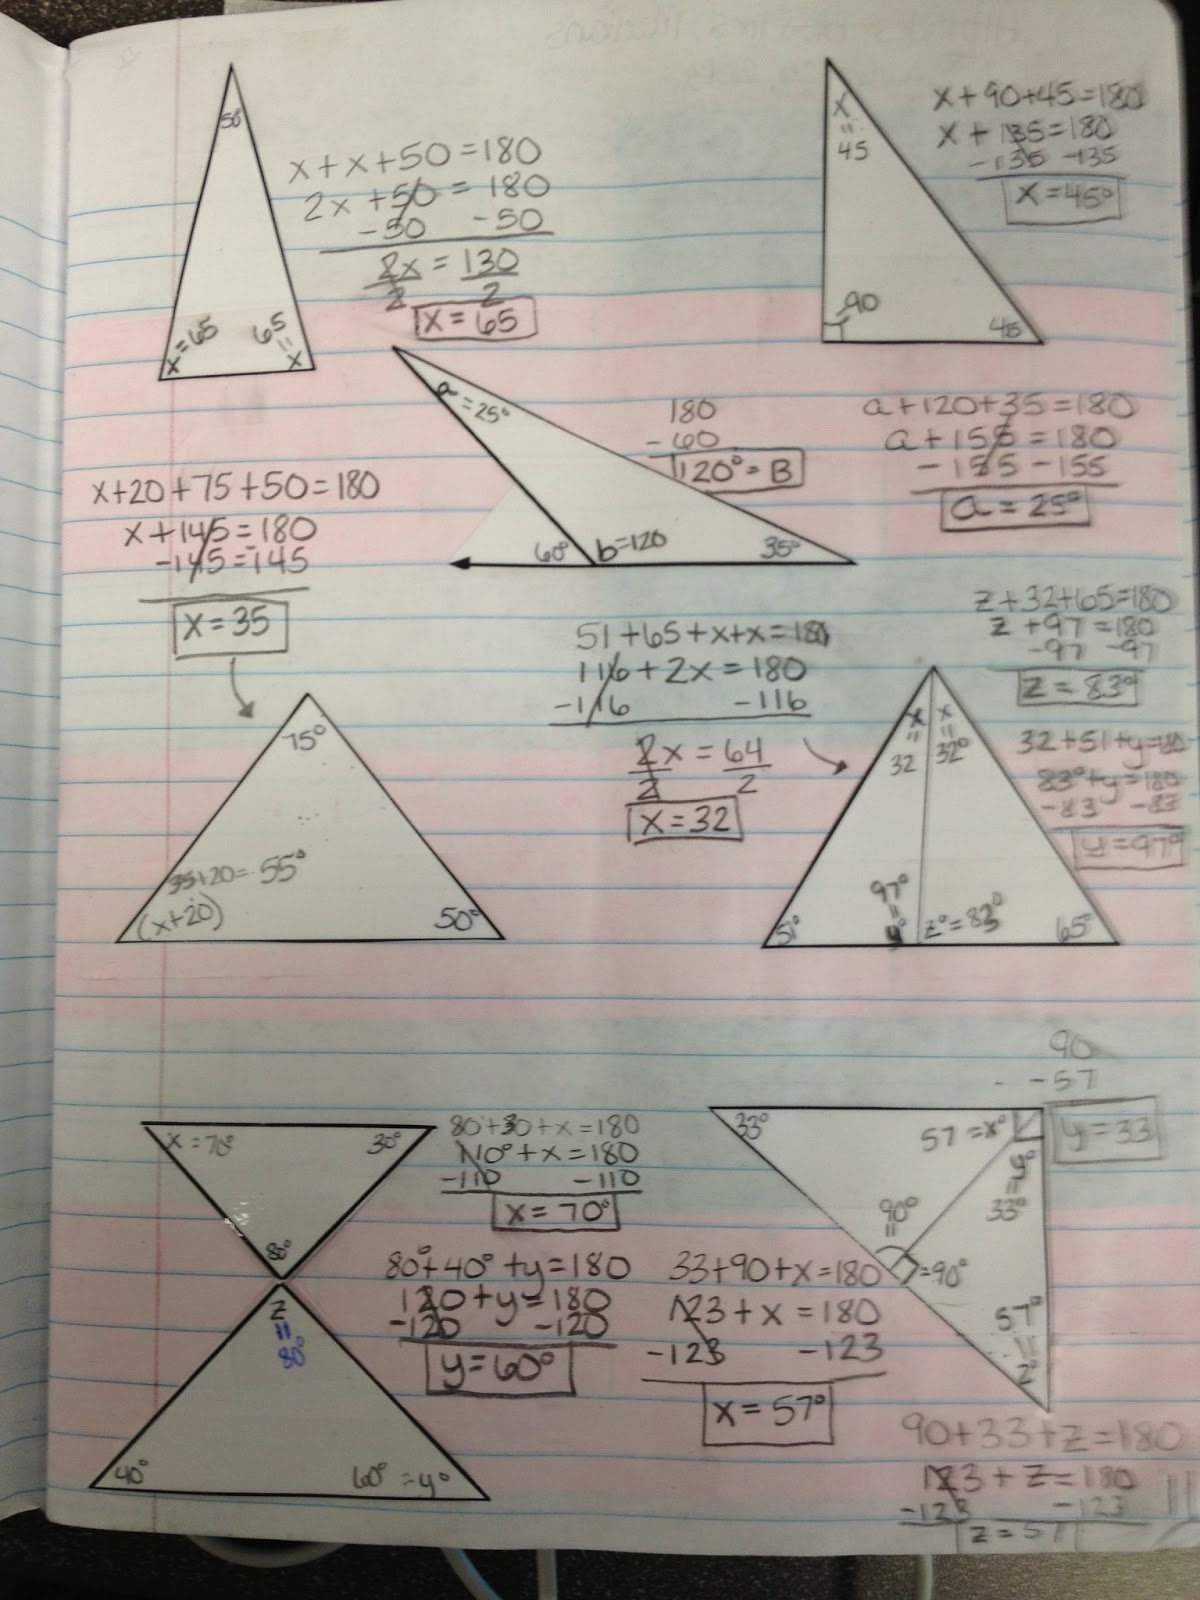 50°
x + x + 50 = 180
2x + 50 = 180
- 50 - 50
2x = 130
2 2
x = 65
x = 65
65 = x
x
=
45
90
45
x + 90 + 45 = 180
x + 135 = 180
- 135 - 135
x = 45°
a = 25°
60°
b = 120
35°
180
- 60
120° = B
a + 120 + 35 = 180
a + 155 = 180
- 155 - 155
a = 25°
x + 20 + 75 + 50 = 180
x + 145 = 180
- 145 = 145
x = 35
75°
35 + 20 = 55°
(x + 20)
50°
51 + 65 + x + x = 180
116 + 2x = 180
- 116 - 116
2x = 64
2 2
x = 32
x x
= =
32 32°
97°
=
y° z° = 83°
51°
65°
z + 32 + 65 = 180
z + 97 = 180
- 97 - 97
z = 83°
32 + 51 + y = 180
83° + y = 180
- 83 - 83
y = 97°
x = 70°
30°
80°
z
=
80°
40°
60° = y°
80 + 30 + x = 180
110° + x = 180
- 110 - 110
x = 70°
80° + 40° + y = 180
120 + y = 180
- 120 - 120
y = 60°
90
- 57
y = 33
33°
57 = x°
y°
=
33°
90°
=
= 90°
57°
=
z°
33 + 90 + x = 180
123 + x = 180
- 123 - 123
x = 57°
90 + 33 + z = 180
123 + z = 180
- 123 - 123
z = 57